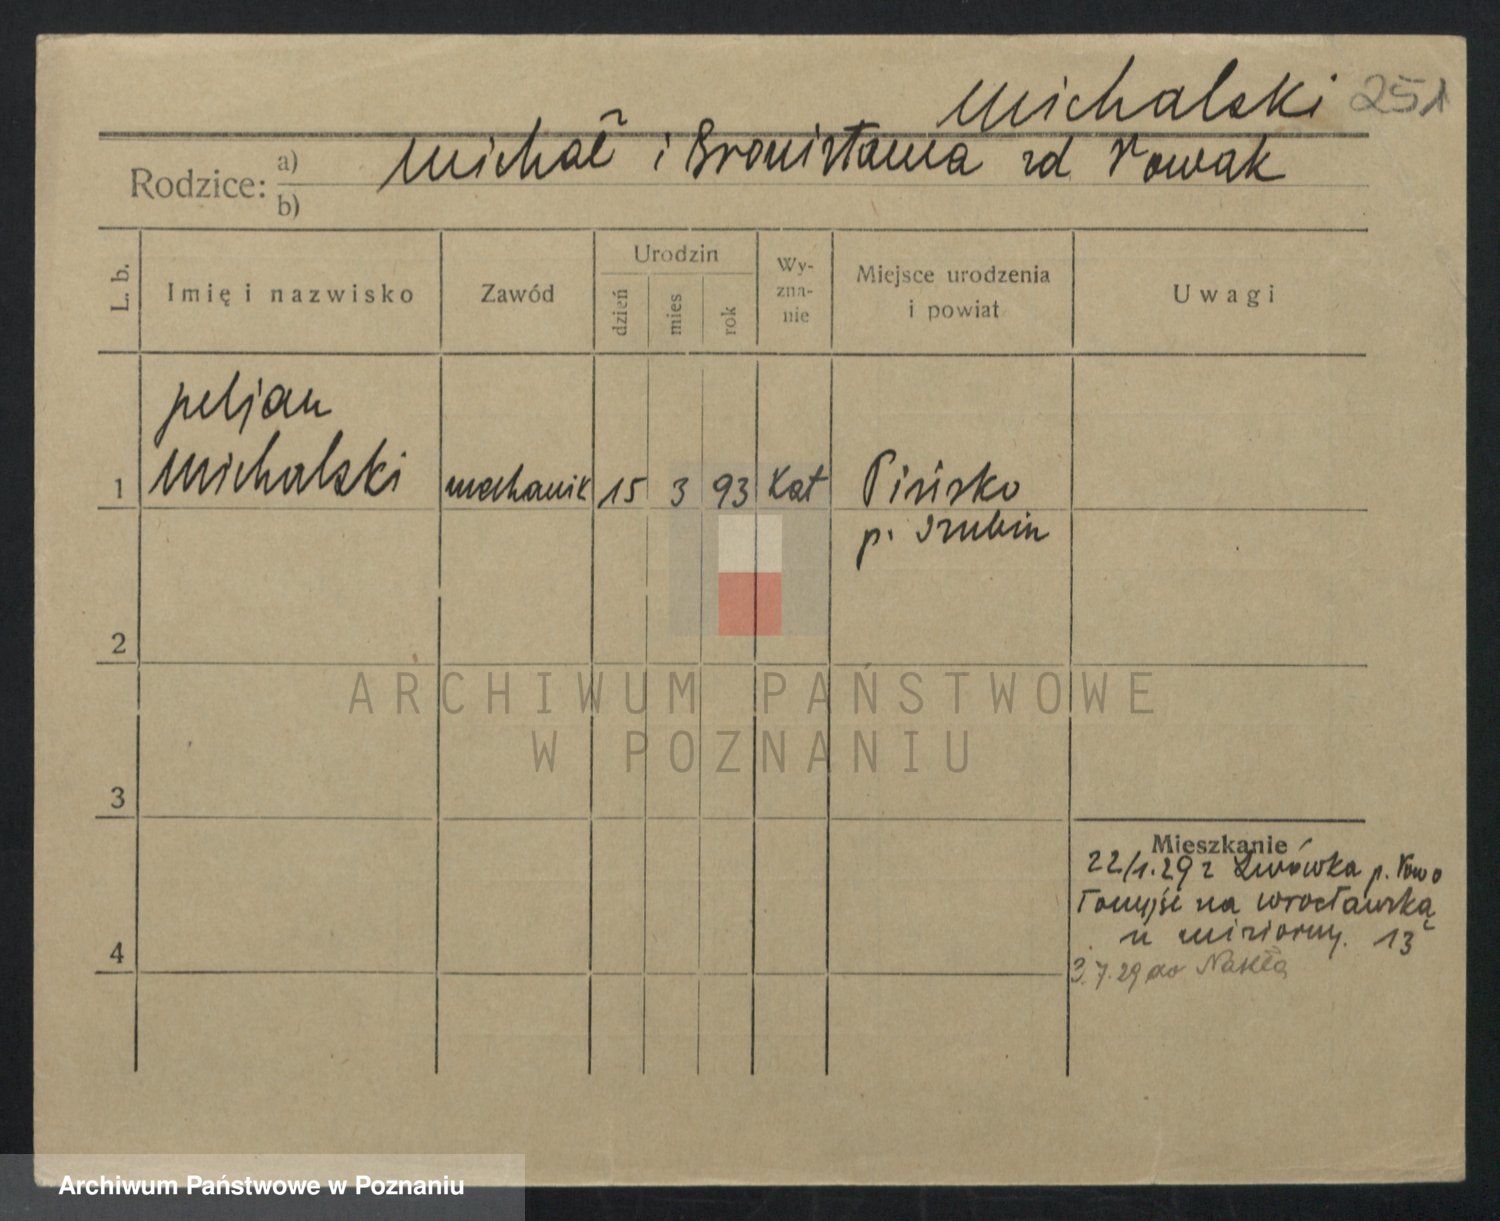 Michalski 251
Michał i Bronisława zd Nowak
Rodzice: a)
b)
L. b.
Imię i nazwisko
Zawód
Urodzin
dzień
mies
rok
Wy-
zna-
nie
Miejsce urodzenia
i powiat
Uwagi
Feljan
1 Michalski mechanik 15 3 93 Kat
p. Szubin
2
ARCHIWUM PAŃSTWOWE
W POZNANIU
3
Mieszkanie
22/1.29 z Lwówka p. Nowo
Tomyśl na wrocławską
13
4
3.7.29 do Nakła
Archiwum Państwowe w Poznaniu